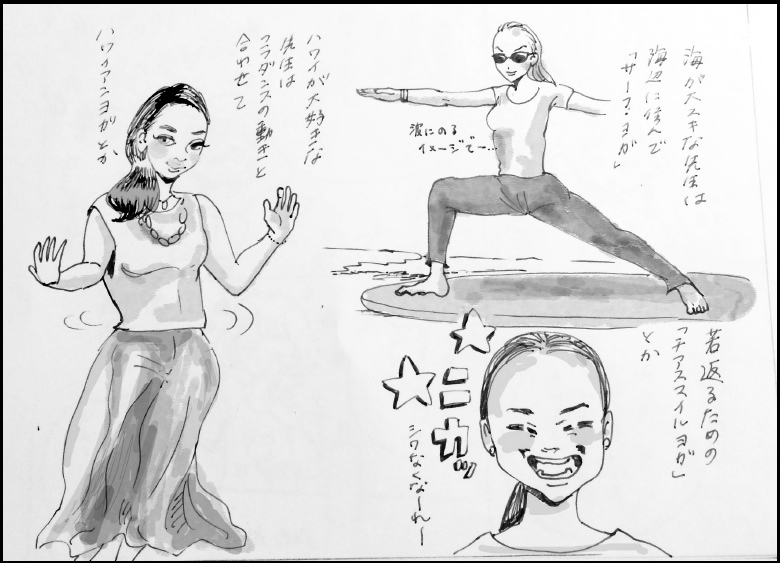 海が大スキな先生は
海辺に住んで
「サーフ・ヨガ」
波にのる
イメージでー…
ハワイが大好きな
先生は
フラダンスの動きと
合わせて
ハワイアンヨガとか
若返るための
「チアスマイルヨガ」
とか
ニカッ
シワなくなーれー